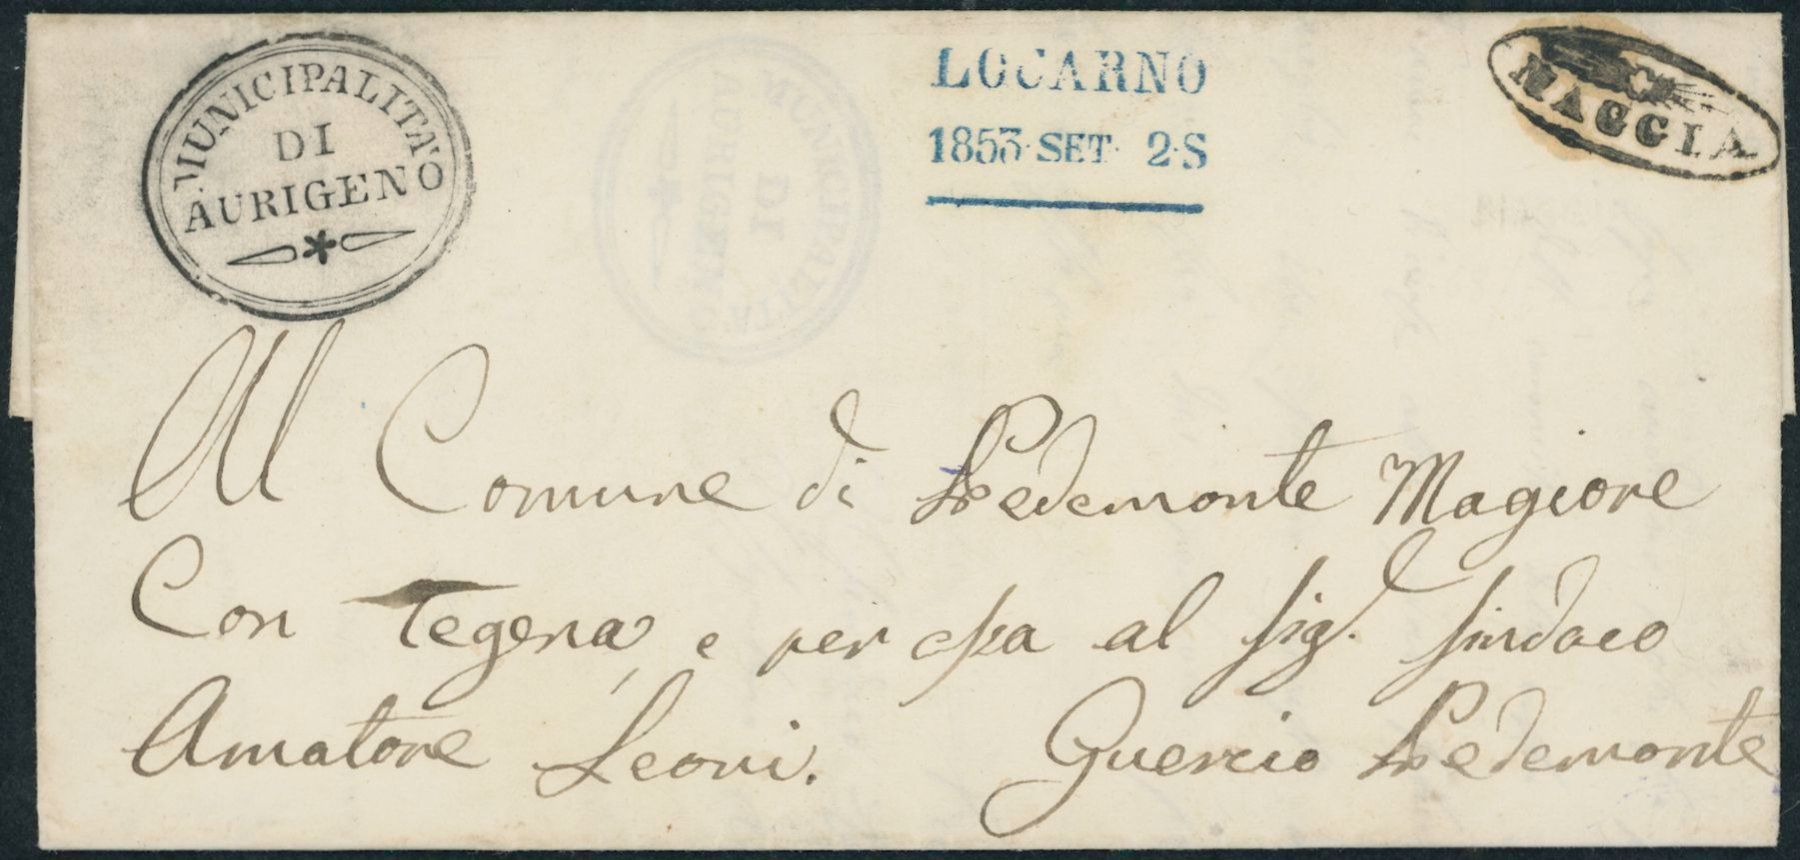 MUNICIPALITA
DI
AURIGENO
LOCARNO
1853 SET 2·S
MAGGIA
Al Comune di Pedemonte Magiore
Con Tegena, e per essa al Sigr. Sindaco
Amatore Leoni. Guercio Pedemonte